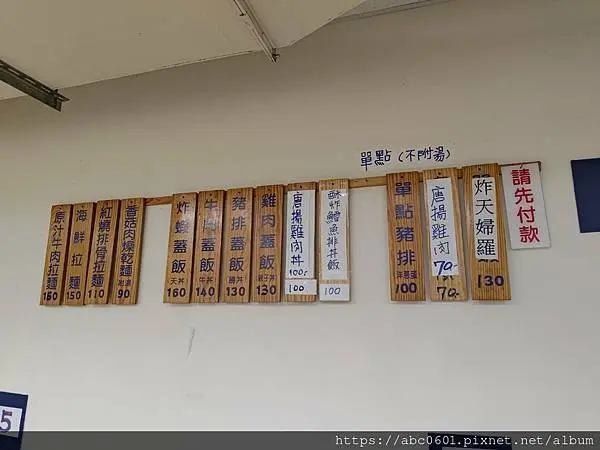 單點(不附湯)
原汁牛肉拉麵
150
海鮮拉麵
150
紅燒排骨拉麵
110
香菇肉燥乾麵
附湯
90
炸蝦蓋飯
天丼
160
牛肉蓋飯
牛丼
140
豬排蓋飯
勝丼
130
雞肉蓋飯
親子丼
130
唐揚雞肉丼
100
100
酥炸鱈魚排丼飯
100
單點豬排
洋蔥蛋
100
唐揚雞肉
70
70
炸天婦羅
130
請先付款
5
https://abc0601.pixnet.net/album